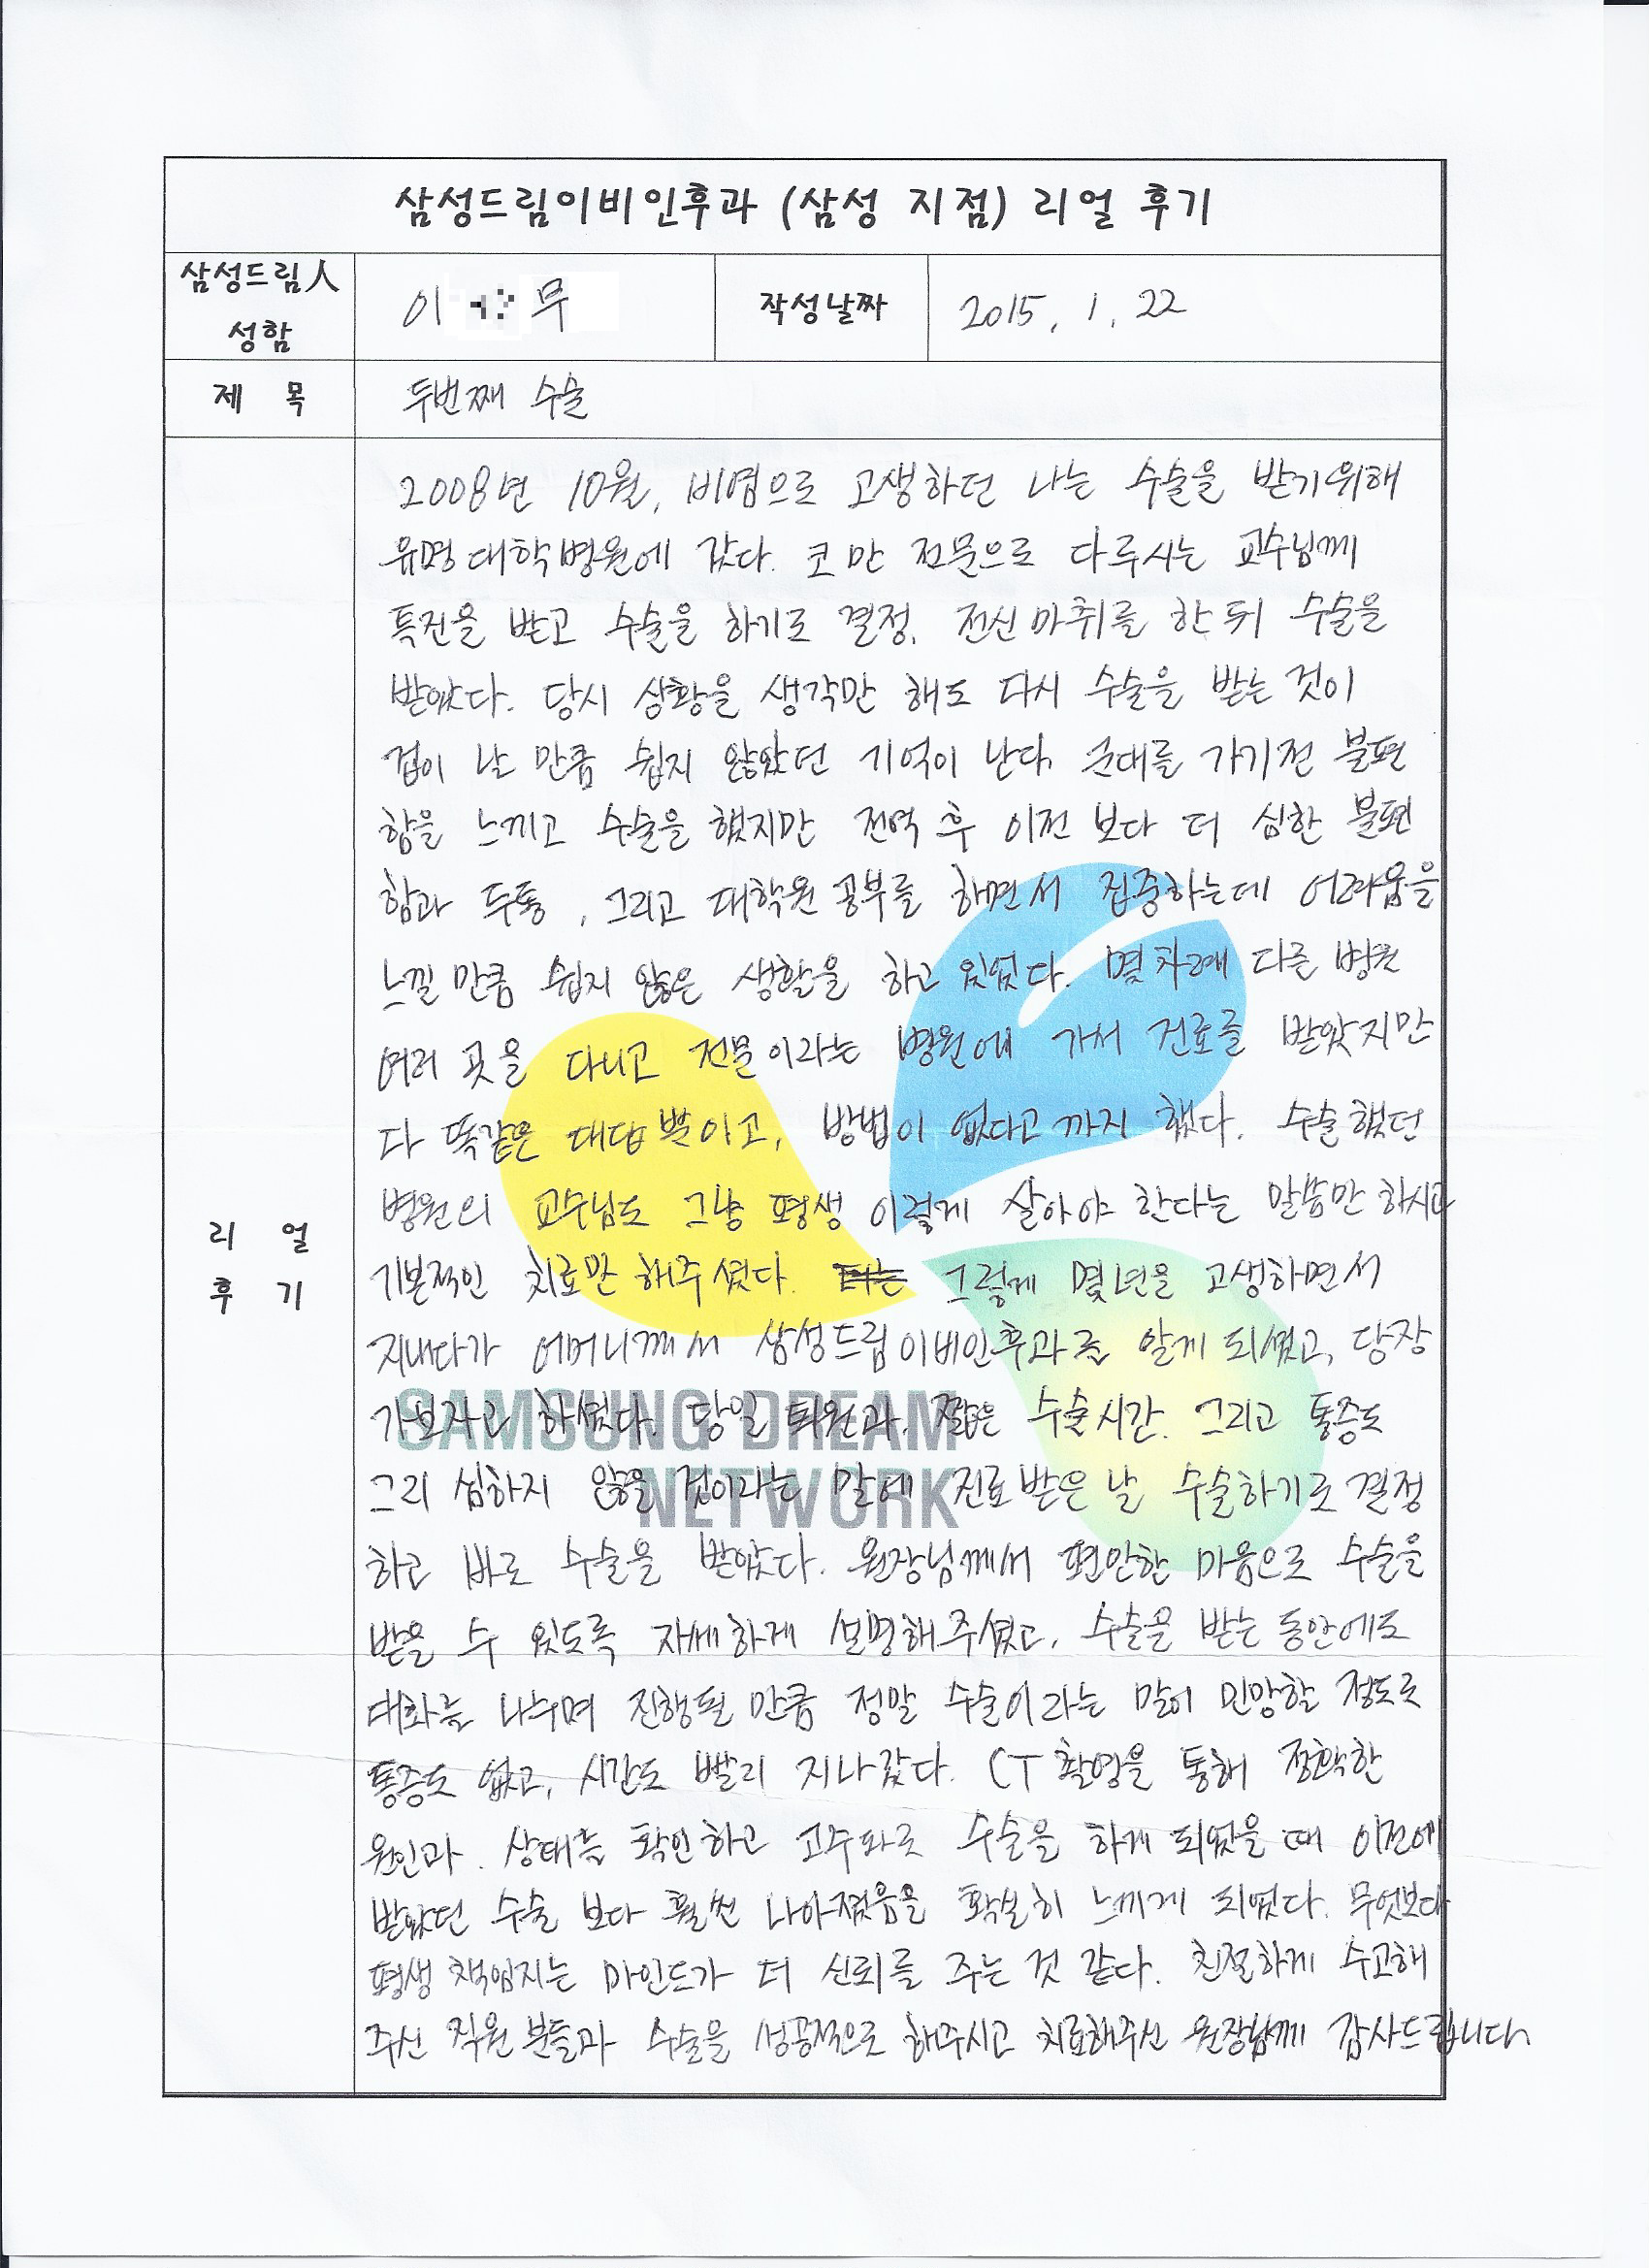 삼성드림이비인후과 (삼성 지점) 리얼 후기
삼성드림人 성함
이 무
작성날짜
2015. 1. 22
제 목
두번째 수술
리 얼 후 기
2008년 10월, 비염으로 고생하던 나는 수술을 받기위해
유명 대학병원에 갔다. 코만 전문으로 다루시는 교수님께
특진을 받고 수술을 하기로 결정. 전신마취를 한 뒤 수술을
받았다. 당시 상황을 생각만 해도 다시 수술을 받는 것이
겁이 날 만큼 쉽지 않았던 기억이 난다. 군대를 가기전 불편
함을 느끼고 수술을 했지만 전역 후 이전 보다 더 심한 불편
함과 두통, 그리고 대학원 공부를 하면서 집중하는데 어려움을
느낄 만큼 쉽지 않은 생활을 하고 있었다. 몇차례 다른 병원
여러 곳을 다니고 전문이라는 병원에 가서 진료를 받았지만
다 똑같은 대답 뿐이고, 방법이 없다고 까지 했다. 수술했던
병원의 교수님도 그냥 평생 이렇게 살아야 한다는 말씀만 하시고
기본적인 치료만 해주셨다. 그렇게 몇년을 고생하면서
지내다가 어머니께서 삼성드림이비인후과를 알게 되셨고, 당장
가보자고 하셨다. 당일 퇴원과. 짧은 수술시간. 그리고 통증도
그리 심하지 않을 것이라는 말에 진료받은 날 수술하기로 결정
하고 바로 수술을 받았다. 원장님께서 편안한 마음으로 수술을
받을 수 있도록 자세하게 설명해주셨고, 수술을 받는 동안에도
대화를 나누며 진행될 만큼 정말 수술이라는 말이 민망할 정도로
통증도 없고, 시간도 빨리 지나갔다. CT 촬영을 통해 정확한
원인과. 상태를 확인하고 고주파로 수술을 하게 되었을 때 이전에
받았던 수술 보다 훨씬 나아졌음을 확실히 느끼게 되었다. 무엇보다
평생 책임지는 마인드가 더 신뢰를 주는 것 같다. 친절하게 수고해
주신 직원분들과 수술을 성공적으로 해주시고 치료해주신 원장님께 감사드립니다
SAMSUNG DREAM
NETWORK